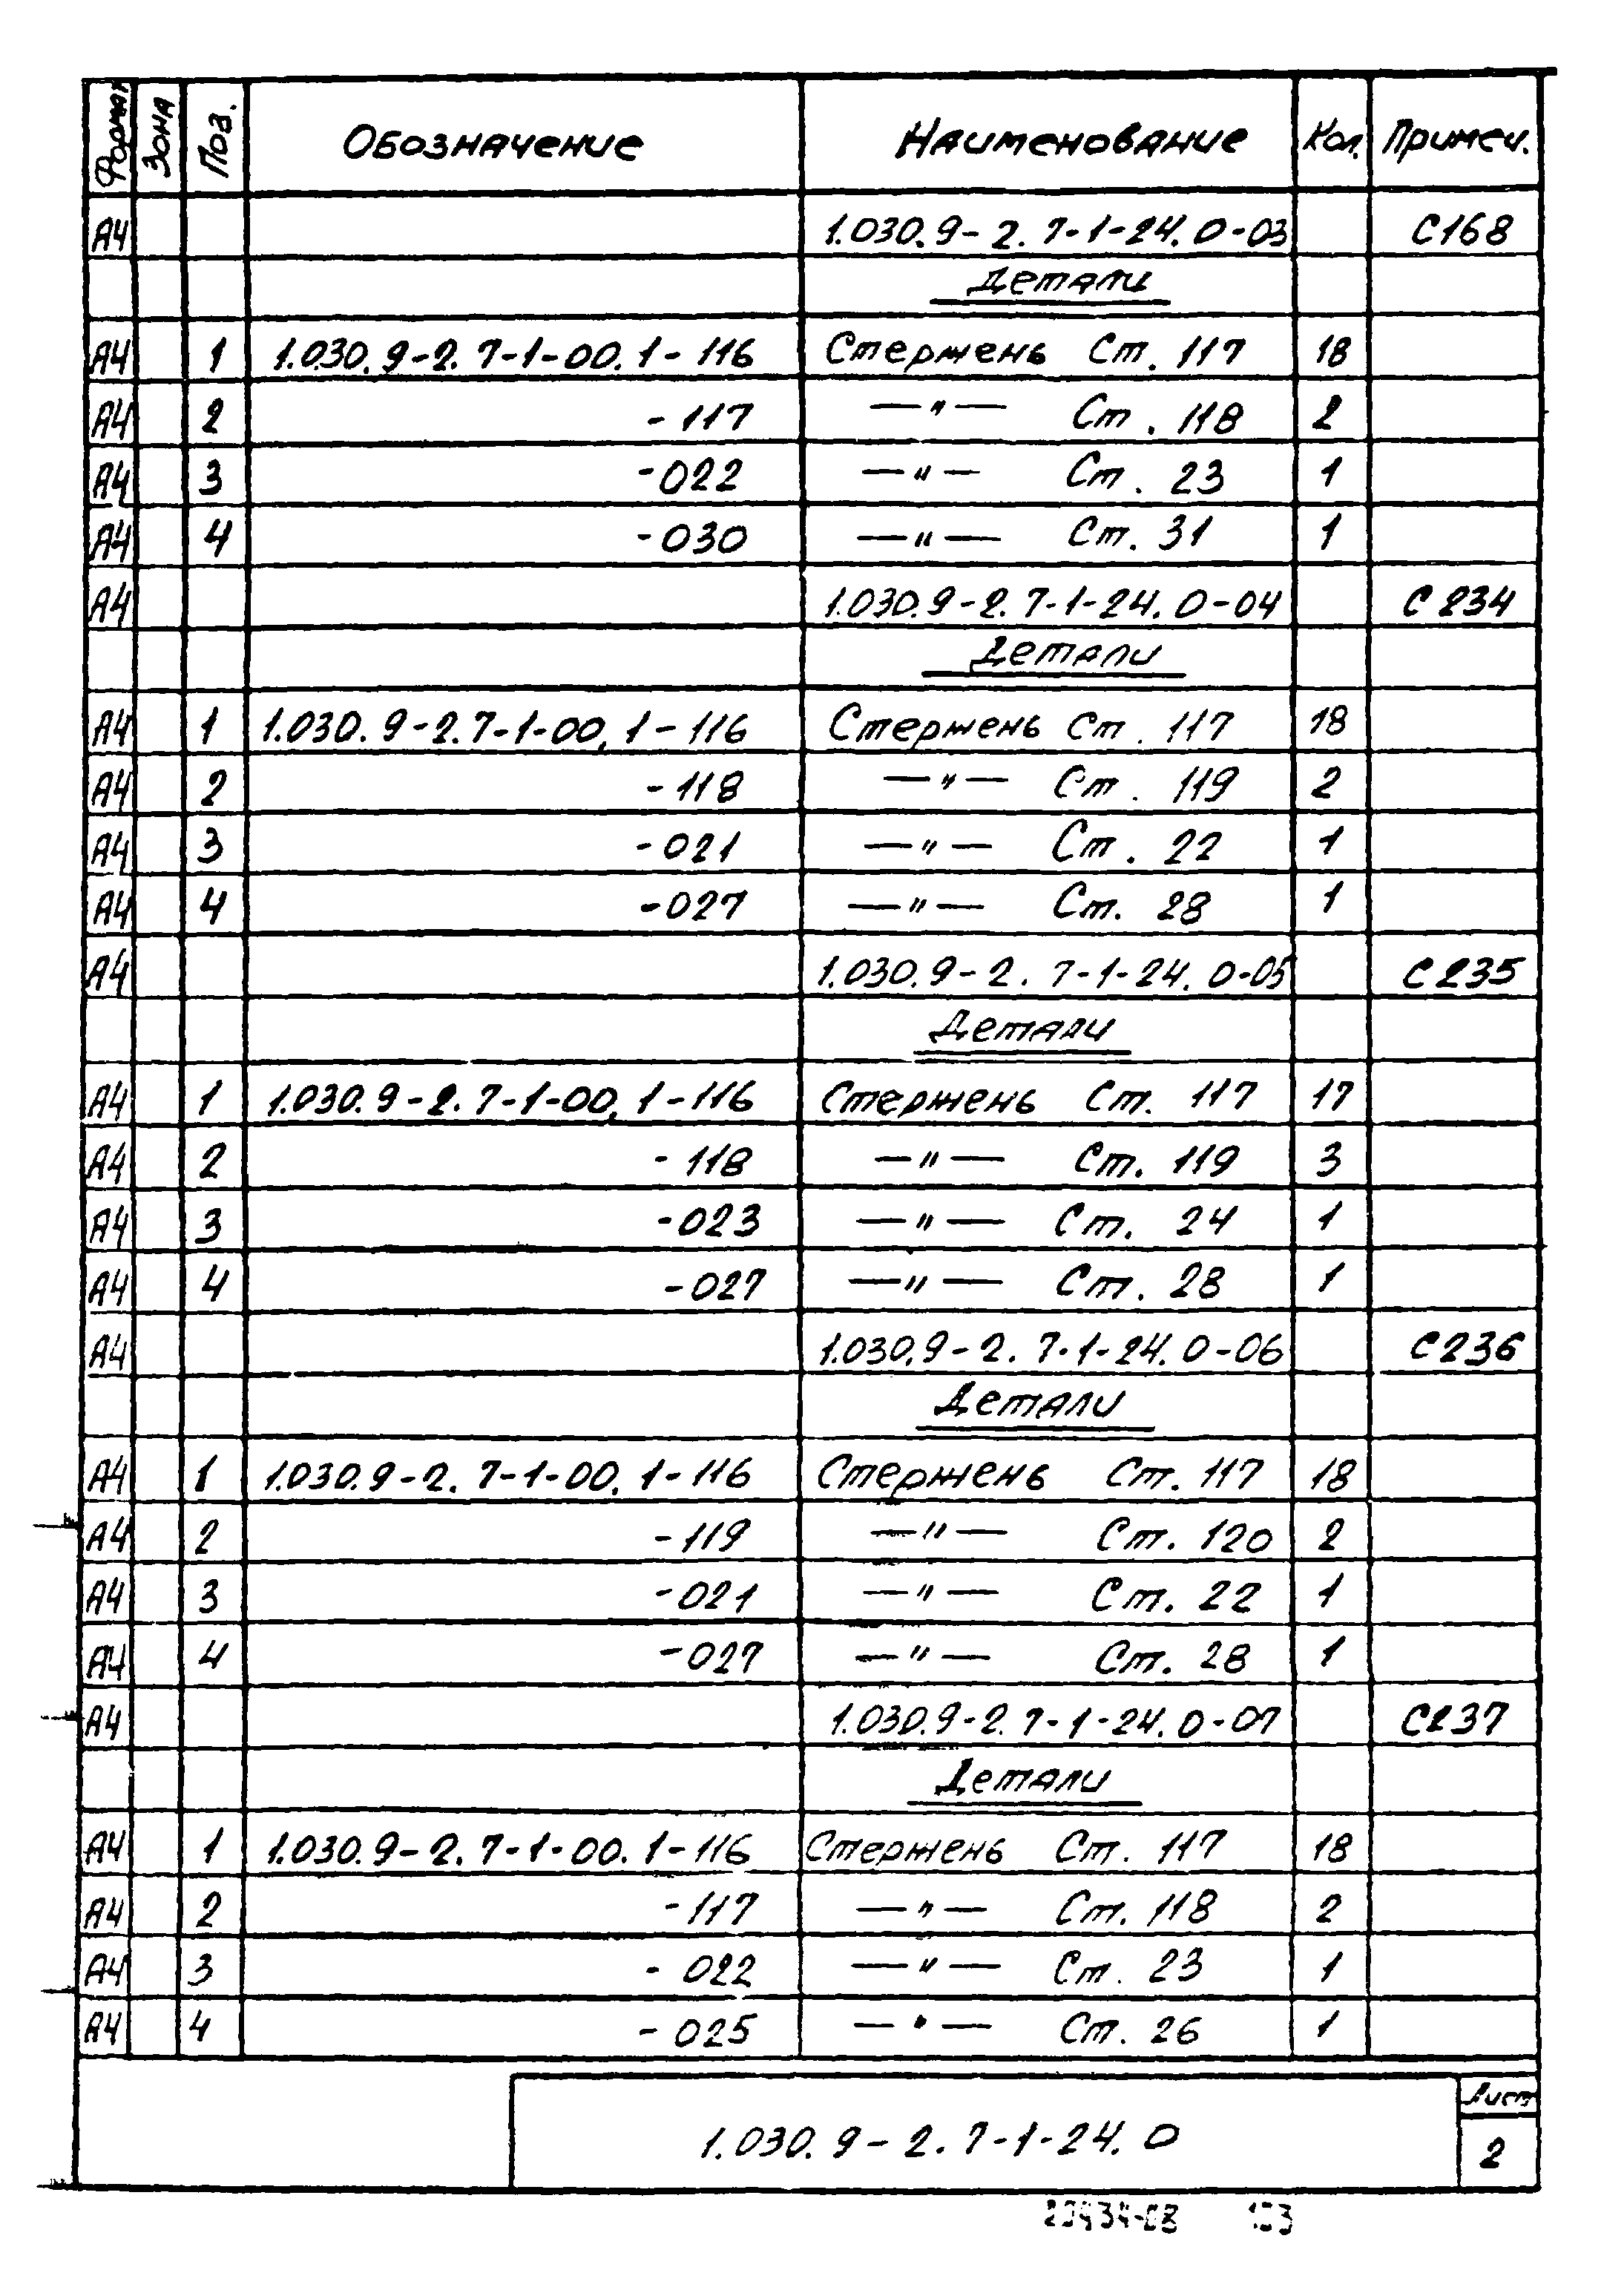 Формат Зона Поз. Обозначение Наименование Кол. Примеч.
А4 1.030.9-2.7-1-24.0-03 С168
Детали
А4 1 1.030.9-2.7-1-00.1-116 Стержень Ст.117 18
А4 2 -117 —"— Ст.118 2
А4 3 -022 —"— Ст.23 1
А4 4 -030 —"— Ст.31 1
А4 1.030.9-2.7-1-24.0-04 С234
Детали
А4 1 1.030.9-2.7-1-00.1-116 Стержень Ст.117 18
А4 2 -118 —"— Ст.119 2
А4 3 -021 —"— Ст.22 1
А4 4 -027 —"— Ст.28 1
А4 1.030.9-2.7-1-24.0-05 С235
Детали
А4 1 1.030.9-2.7-1-00.1-116 Стержень Ст.117 17
А4 2 -118 —"— Ст.119 3
А4 3 -023 —"— Ст.24 1
А4 4 -027 —"— Ст.28 1
А4 1.030.9-2.7-1-24.0-06 С236
Детали
А4 1 1.030.9-2.7-1-00.1-116 Стержень Ст.117 18
А4 2 -119 —"— Ст.120 2
А4 3 -021 —"— Ст.22 1
А4 4 -027 —"— Ст.28 1
А4 1.030.9-2.7-1-24.0-07 С237
Детали
А4 1 1.030.9-2.7-1-00.1-116 Стержень Ст.117 18
А4 2 -117 —"— Ст.118 2
А4 3 -022 —"— Ст.23 1
А4 4 -025 —"— Ст.26 1
1.030.9-2.7-1-24.0
Лист
2
20434-08 103